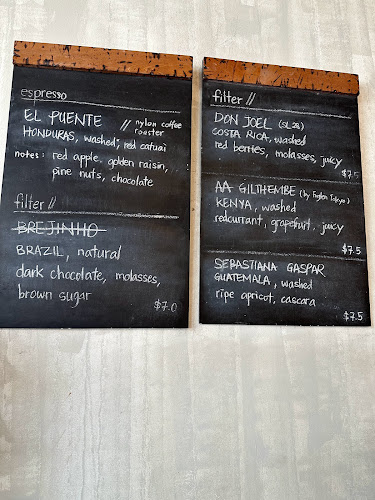 espresso
EL PUENTE // nylon coffee roaster
HONDURAS, washed, red catuai
notes: red apple, golden raisin,
pine nuts, chocolate
filter //
BREJINHO
BRAZIL, natural
dark chocolate, molasses,
brown sugar
$7.0
filter //
DON JOEL (SL28)
COSTA RICA, washed
red berries, molasses, juicy
$7.5
AA GILTHEMBE (by Fuglen Tokyo)
KENYA, washed
redcurrant, grapefruit, juicy
$7.5
SEBASTIANA GASPAR
GUATEMALA, washed
ripe apricot, cascara
$7.5